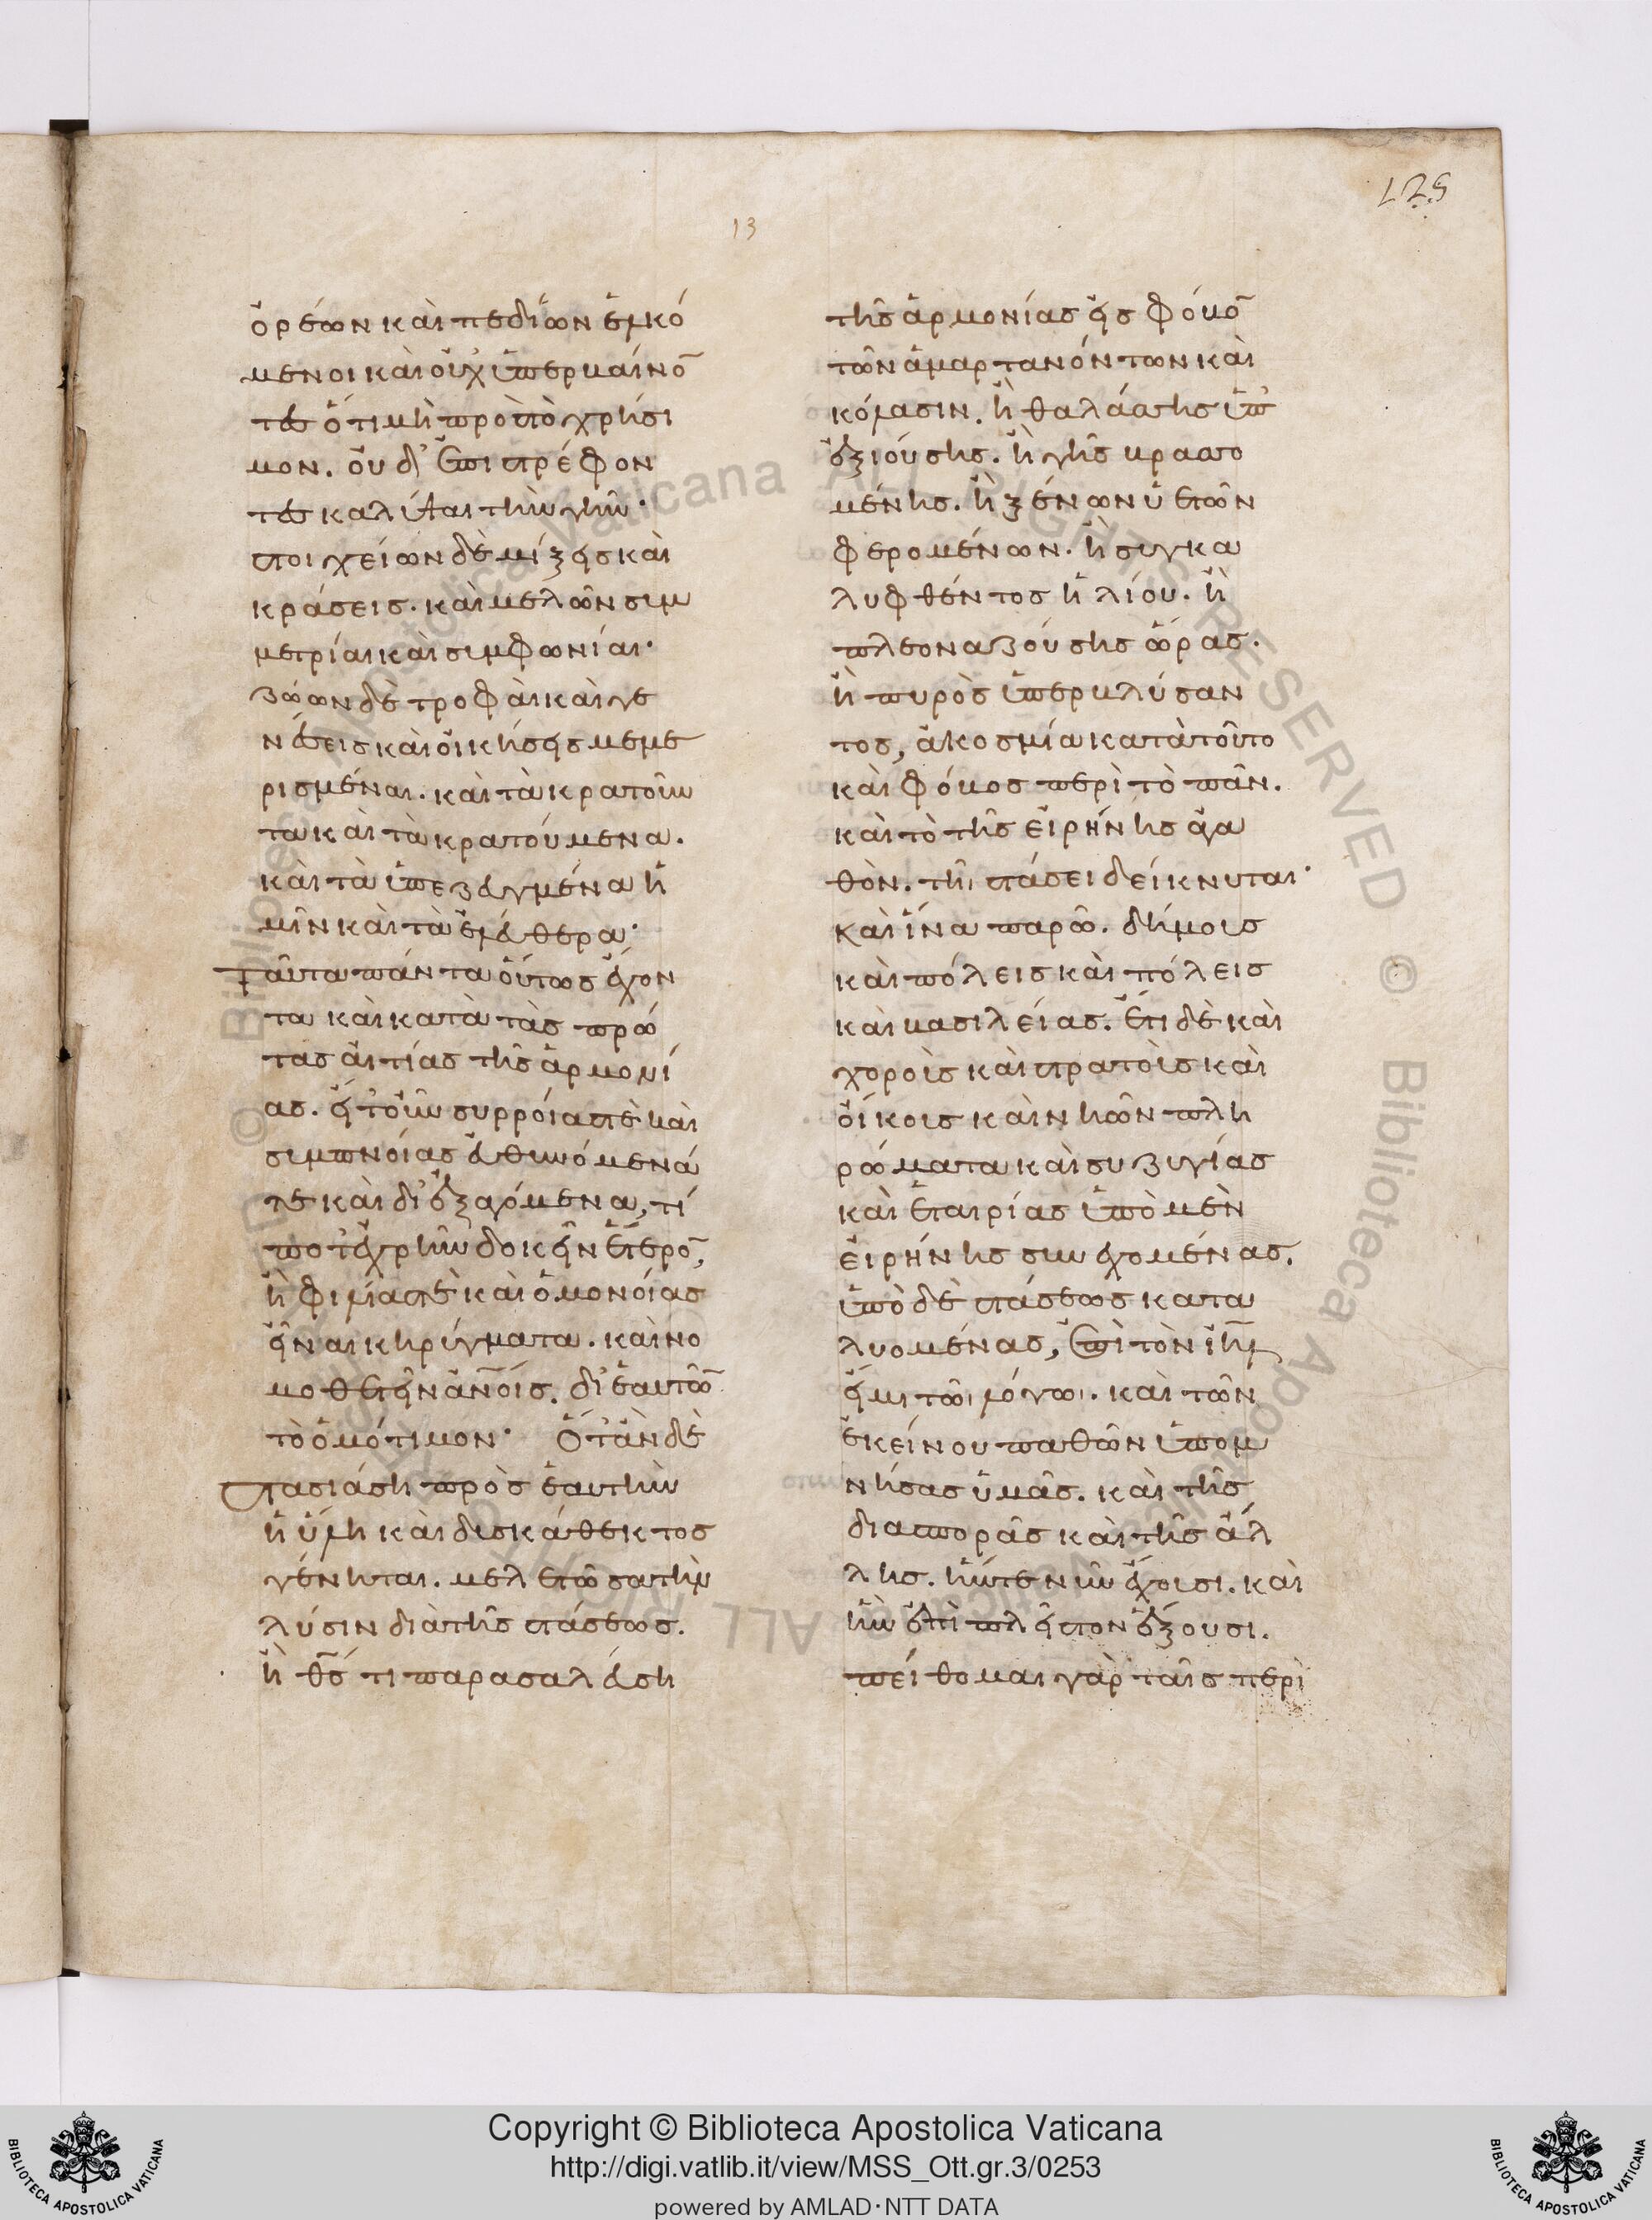 125
13
ὀρέων καὶ πεδίων εἰργό
μενοι καὶ οὐχ ὑπερβαίνο̄
τες ὅτι μὴ πρὸς τὸ χρήσι
μον. οὐδ' ἐπιστρέφον
τες καλύψαι τὴν γῆν·
στοιχείων δὲ μίξεις καὶ
κράσεις. καὶ μελῶν συμ
μετρίαι καὶ συμφωνίαι·
ζώων δὲ τροφαὶ καὶ γε
νέσεις καὶ οἰκήσεις μεμε
ρισμέναι. καὶ τὰ κρατοῦν
τα καὶ τὰ κρατούμενα.
καὶ τὰ ὑπεζευγμένα ἡ
μῖν καὶ τὰ ἐλεύθερα·
Ταῦτα πάντα οὕτως ἔχον
τα καὶ κατὰ τὰς πρώ
τας αἰτίας τῆς ἁρμονί
ας. εἴτ' οὖν συρροίας τὲ καὶ
συμπνοίας εὐθυνόμενά
τε καὶ διεξαγόμενα, τί
ποτ' ἐχρῆν δοκεῖν ἕτερο̄,
ἢ φιλίας τὲ καὶ ὁμονοίας
εἶναι κηρύγματα. καὶ νο
μοθετεῖν ἀν̅οις. δι' ἑαυτῶ̄
τὸ ὁμότιμον· Ὅταν δὲ
στασιάση πρὸς ἑαυτὴν
ἡ ὕλη καὶ δυσκάθεκτος
γένηται. μελετῶσα τὴν
λύσιν διὰ τῆς στάσεως.
ἢ θ̅ς τι παρασαλεύση
τῆς ἁρμονίας εἰς φόβο̄
τῶν ἁμαρτανόντων καὶ
κόλασιν. ἢ θαλάσσης ὑπ
εξιούσης. ἢ γῆς βρασσο
μένης. ἢ ξένων ὑετῶν
φερομένων. ἢ συγκα
λυφθέντος ἡλίου. ἢ
πλεοναζούσης ὥρας.
ἢ πυρὸς ὑπερβλύσαν
τος, ἀκοσμία κατὰ τοῦτο
καὶ φόβος περὶ τὸ πᾶν.
καὶ τὸ τῆς εἰρήνης ἀγα
θὸν. τῆι στάσει δείκνυται·
καὶ ἵνα παρῶ. δήμους
καὶ πόλεις καὶ πόλεις
καὶ βασιλείας. ἔτι δὲ καὶ
χοροὺς καὶ στρατοὺς καὶ
οἴκους καὶ νηῶν πλη
ρώματα καὶ συζυγίας
καὶ ἑταιρίας ὑπὸ μὲν
εἰρήνης συνεχομένας.
ὑπὸ δὲ στάσεως κατα
λυομένας, ἐπὶ τὸν ἰη̅λ
εἶμι τῶι λόγωι. καὶ τῶν
ἐκείνου παθῶν ὑπομ
νήσας ὑμᾶς. καὶ τῆς
διασπορᾶς καὶ τῆς ἄλ
λης. ἥντε νῦν ἔχουσι. καὶ
ἣν ἐπὶ πλεῖστον ἕξουσι.
πείθομαι γὰρ ταῖς περὶ
Copyright © Biblioteca Apostolica Vaticana
http://digi.vatlib.it/view/MSS_Ott.gr.3/0253
powered by AMLAD·NTT DATA